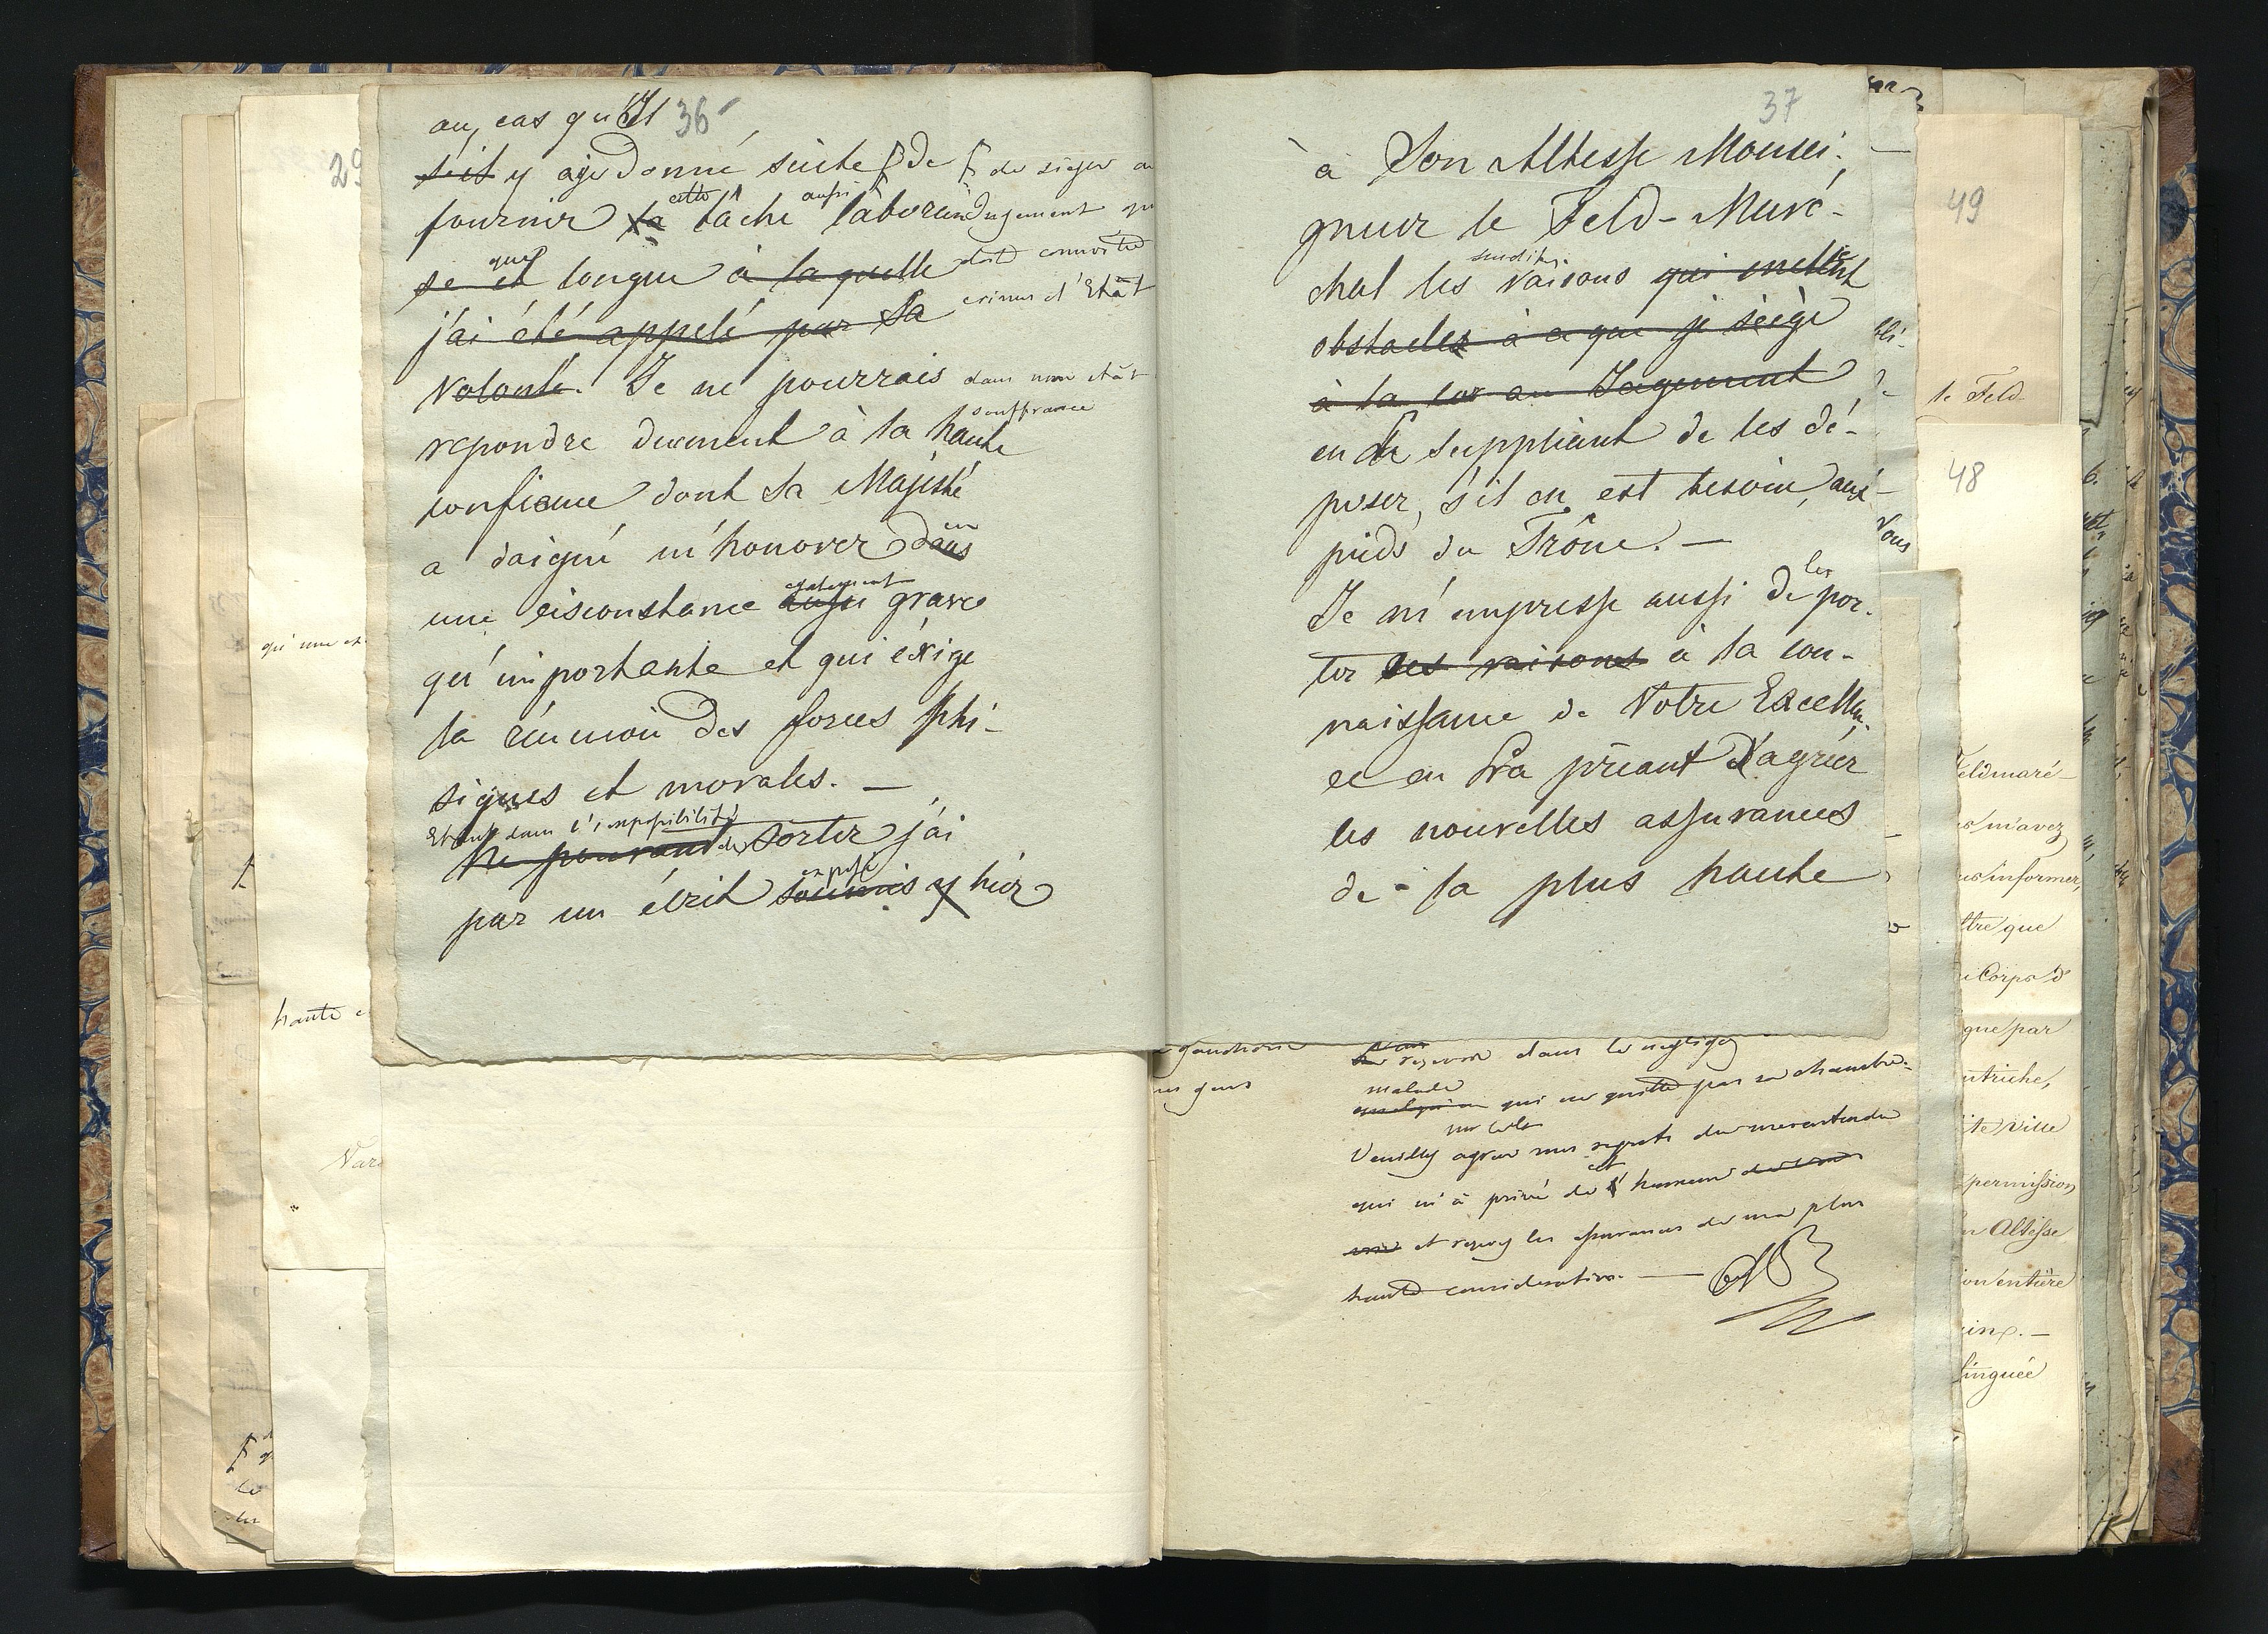 au cas qu'Il
36
soit y aije donné suite de
fournir la cette tâche aussi laborieu
se et que longue à laquelle
j'ai été appelé par Sa
Volonté. Je ne pourrais
repondre duement à la haute
confiance dont Sa Majesté
a daigné m'honorer dans en
une cisconstance aussi egalement grave
qu'importante et qui éxige
la réunion des forces phi-
siques et morales. —
Etant dans l'impossibilité
Ne pouvant de sortir j'ai
par un écrit soumis exposé y hier
de siéger au
Jugement qu
doit connoitre
crimes d'Etat
dans mon etât
souffrance
37
à Son Altesse Monsei-
gneur le Feld-Maré-
chal les susdites raisons qui mettent
obstacles à ce que je siège
à la cor au Jugement
en Le suppliant de les dé-
poser, s'il en est besoin, aux
pieds du Trône. —
Je m'empresse aussi de les por-
ter ces raisons à la con-
naissance de Votre Excellen-
ce en La priant d'agréer
les nouvelles assurances
de la plus haute
dans le negligé
malade
qui ne quitte pas sa chambre.
Veuillez agréer mes regrets du mesentendu
qui m'a privé de cet honneur
et reçevez les assurances de ma plus
haute consideration. —
29
qu'une et
haute c
49
le Feld
48
Vous
Feldmaré-
m'avez
informer,
ttre que
Corps d
que par
utriche,
ite Ville
permission
n Altesse
ion entière
linguée